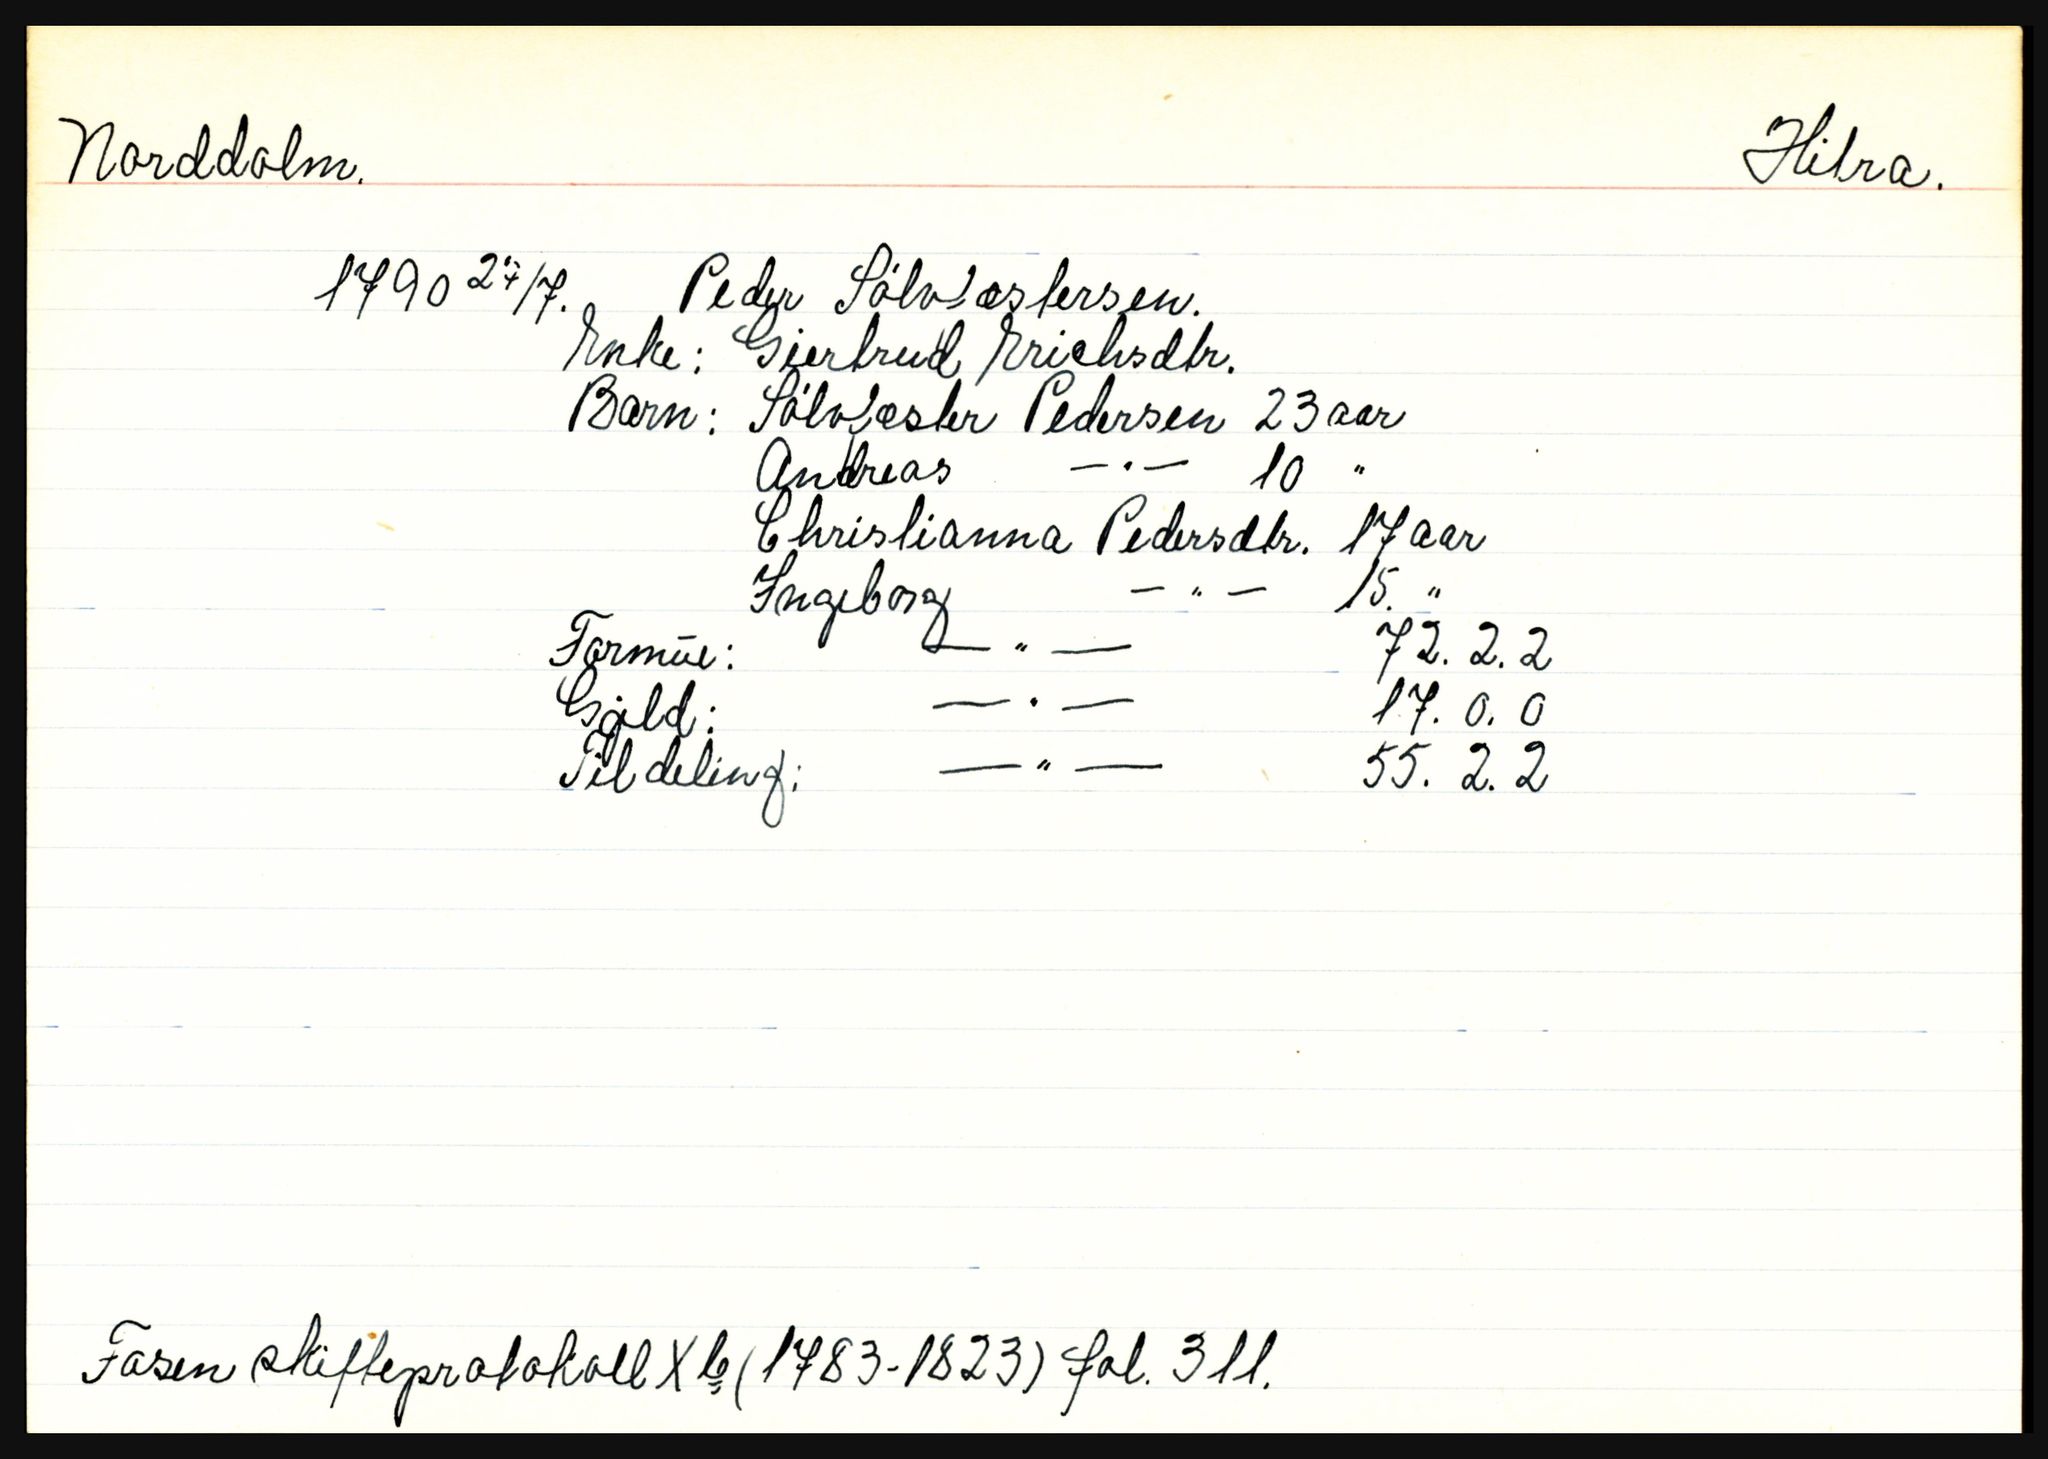 Norddolm. Hitra.
1790 27/7. Peder Sølvæstersen.
Enke: Giertrud Erichsdtr.
Barn: Sølvæster Pedersen 23 aar
Andreas — " — 10 "
Christianna Pedersdtr. 17 aar
Ingeborg — " — 15. "
Formüe: — " — 72. 2. 2
Gjæld: — " — 17. 0. 0
Til deling: — " — 55. 2. 2
Fosen skifteprotokoll X b (1783-1823) fol. 311.